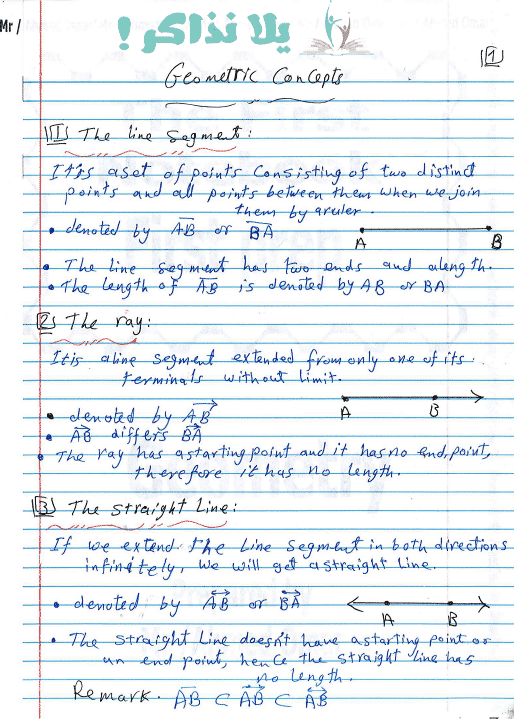 Mr /
يلا نذاكر !
1
Geometric Concepts
1 The line Segment:
It is a set of points Consisting of two distinct
points and all points between them when we join
them by a ruler.
• denoted by A̅B̅ or B̅A̅
A B
• The line segment has two ends and a length.
• The length of A̅B̅ is denoted by AB or BA
2 The ray:
It is a line segment extended from only one of its
terminals without limit.
A B
• denoted by AB→
• AB→ differs BA→
• The ray has a starting point and it has no end, point,
therefore it has no length.
3 The straight Line:
If we extend the Line Segment in both directions
infinitely, we will get a straight Line.
• denoted by AB↔ or BA↔
A B
• The straight Line doesn't have a starting point or
an end point, hence the straight line has
no length.
Remark. A̅B̅ ⊂ AB→ ⊂ AB↔